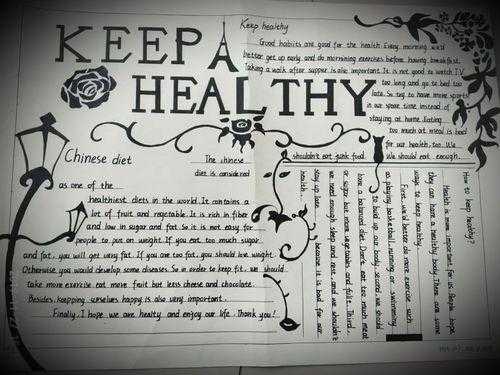 KEEP A
HEALTHY
Keep healthy
Good habits are good for the health Every morning. we'd
better get up early and do mornining exercises before having breakfast.
Taking a walk after supper is also important. It is not good to watch T.V.
too long and go to bed too
late. So try to have more sports
in our spare time instead of
staying at home. Eating
too much at meal is bad
for our health, too. We
shouldn't eat junk food. We should eat enough.
Chinese diet The chinese
diet is considered
as one of the
healthiest diets in the world. It contains a
lot of fruit and vegetable. It is rich in fiber
and low in sugar and fat. So it is not easy for
people to put on weight. If you eat too much sugar
and fat, you will get very fat. If you are too fat, you should lose weight.
Otherwise you would develop some diseases. So in order to keep fit, we should
take more exercise, eat more fruit but less cheese and chocolate.
Besides, keepping ourselves happy is also very important.
Finally. I hope we are healty and enjoy our life. Thank you!
How to keep healthy?
Health is more important for us. People hope
they can have a healthy body. There are some
ways to keep healthy.
First, we'd better do more exercise, such
as playing basketball, running, or swimming
to build up our body. Second, we should
have a balanced diet. Don't eat too much meat
or sugar but more vegetables and Third,
we need enough sleep and rest, and we shouldn't
stay up late, because it is bad for our
health.